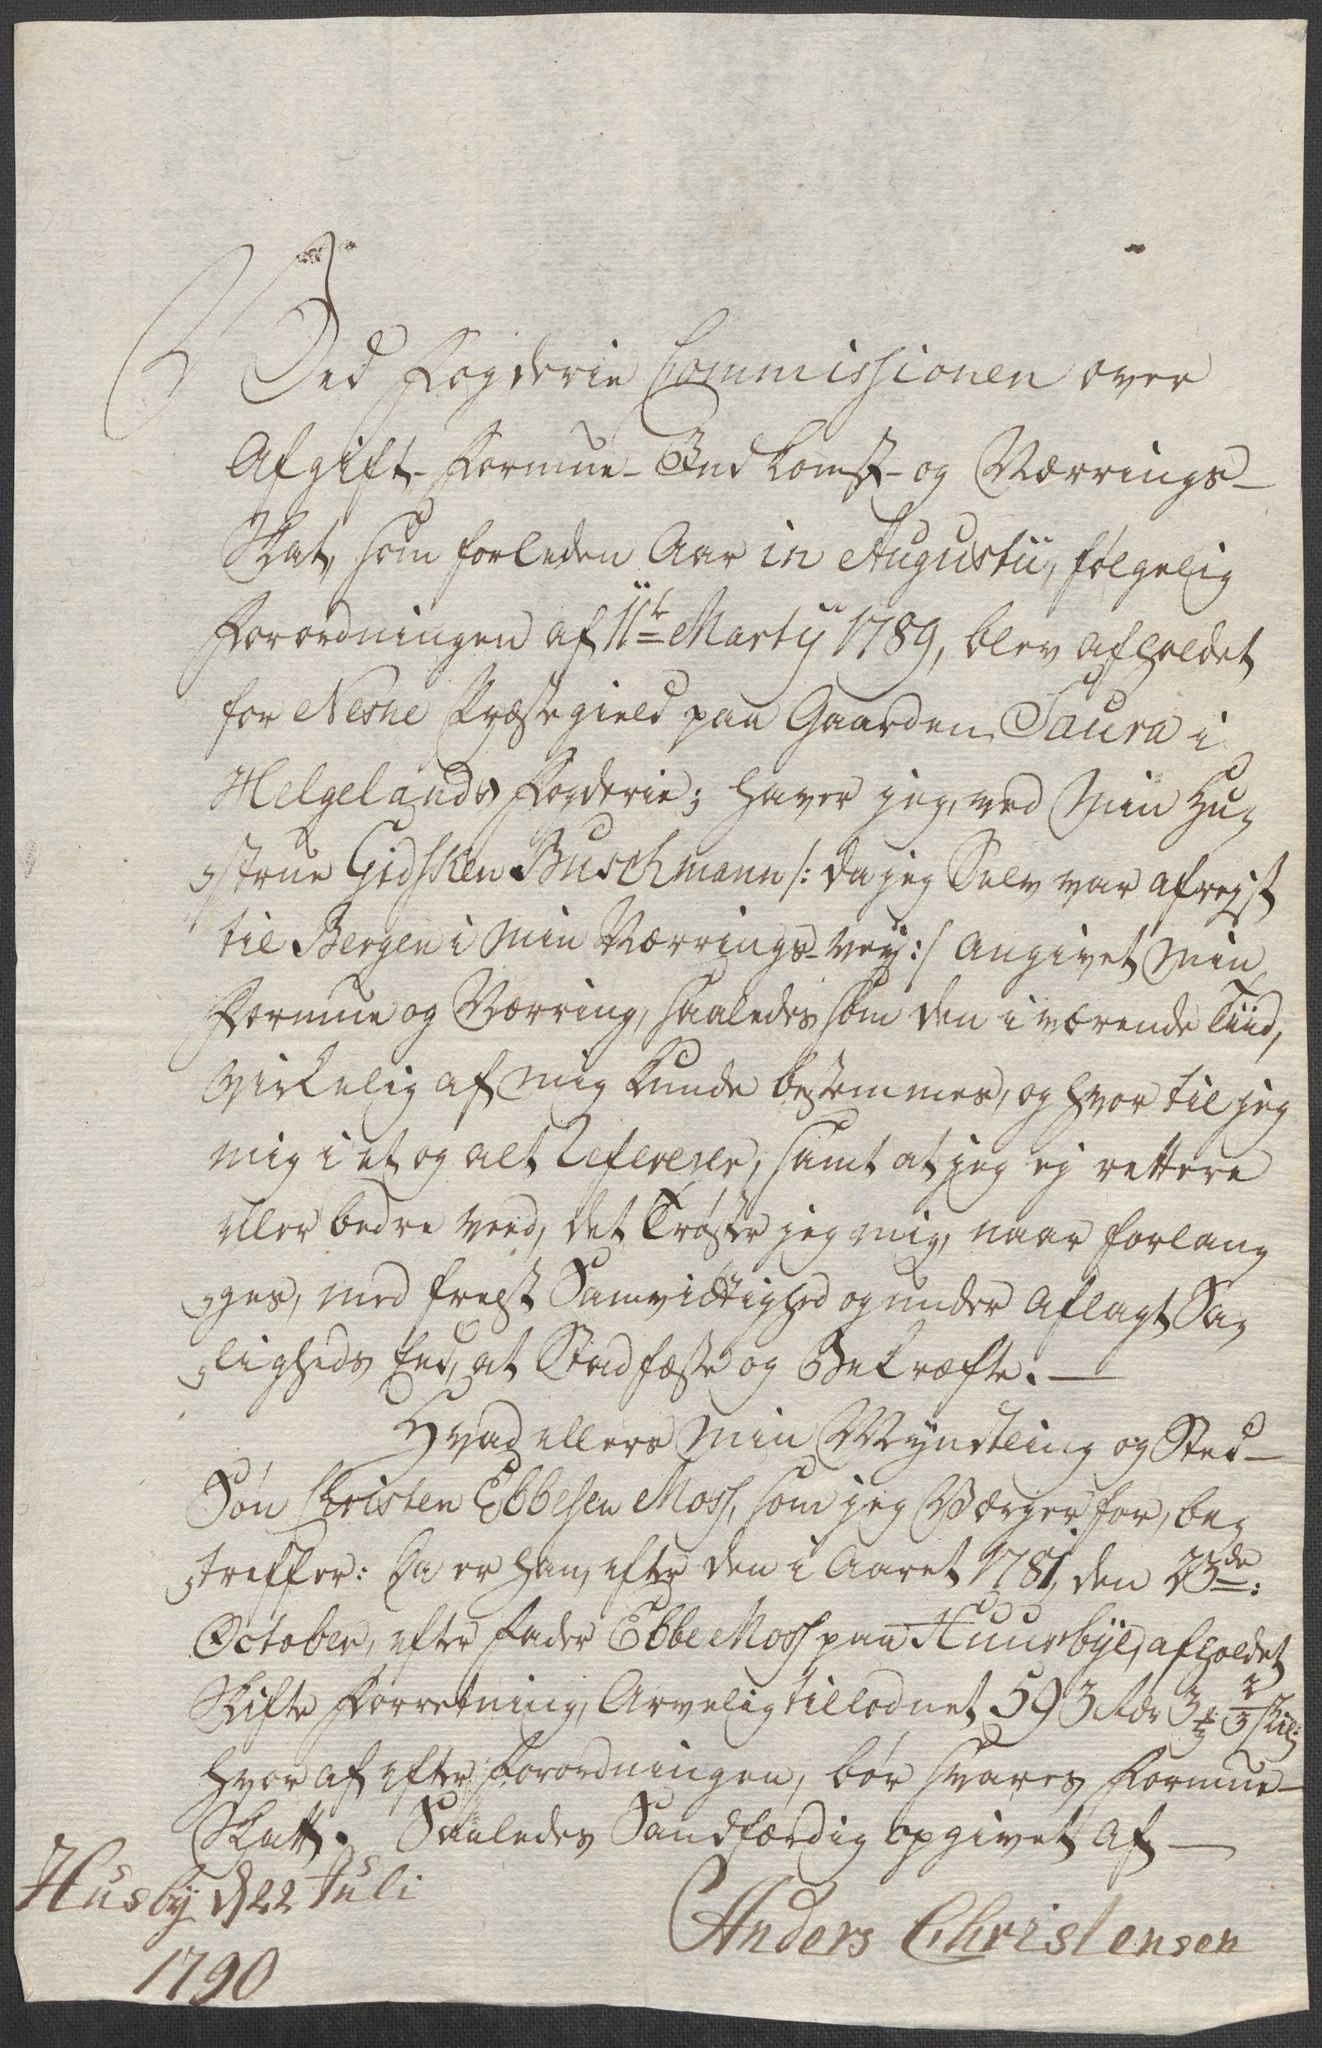 Ved Fogderie Commissionen over
Afgift- Formue- Indkomst- og Nærrings-
Skat, som forleden Aar in Augusti, følgelig
Forordningen af 11te Martij 1789, blev afholdet
for Nesne Præstegield paa Gaarden Saura i
Helgelands Fogderie; haver jeg, ved Min Hu-
-strue Gidsken Buschmann /: da jeg Selv var afrejst
til Bergen i Min Nærrings-vej :/ angivet Min
Formue og Nærring, saaledes som den i værende Tiid,
virkelig af mig kunde bestemmes, og hvortil jeg
mig i et og alt Refererer, samt at jeg ej rettere
eller bedre veed, det Trøster jeg mig, naar forlan-
-ges, med frelst Samvittighed og under aflagt Sa-
-ligheds Eed, at Stadfæste og Bekræfte. —
Hvad ellers Min Myndtling og Sted-
Søn Christen Ebbesen Moss, som jeg Værger for, be-
-træffer: Da er han, efter den i Aaret 1781, den 23de:
October, efter Fader Ebbe Moss paa Huusbye, afholdet
Skifte Forretning, Arvelig tillodnet 593 Rdr 3 # 2/3 skil:
hvoraf efter Forordningen, bør svares Formue-
Skatt. Saaledes Sandfærdig opgivet af —
Husby d 22 Juli
1790
Anders Christensen